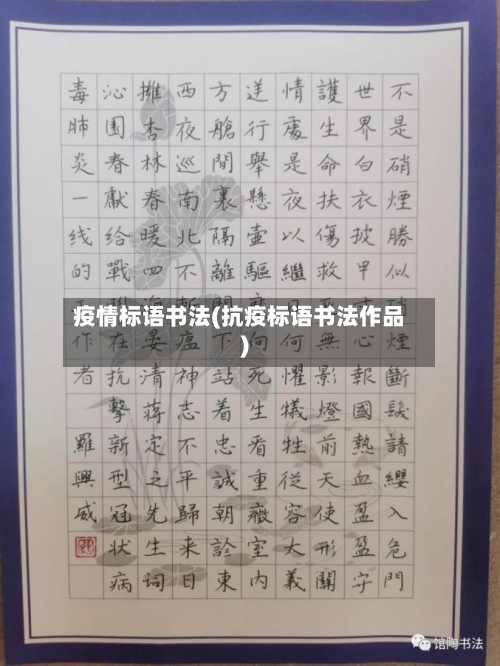 不是硝煙勝似硝煙斷髮請纓入危門
世界白衣披甲心報國熱血盈盈守
護生命扶傷救無影燈前天使形關
情處是夜以繼日何懼犧牲從容大義
逆行舉懸壺驅向死生看重癥室內
方艙間裏隔離下站着忠誠朝診東
西夜巡南北不瘟神志不平歸來日
擁杏林春暖四海安清蒋定之先生词
沁園春獻給戰在抗擊新型冠状病
毒肺炎一线的作者 羅興威
疫情标语书法(抗疫标语书法作品
)
馆陶书法